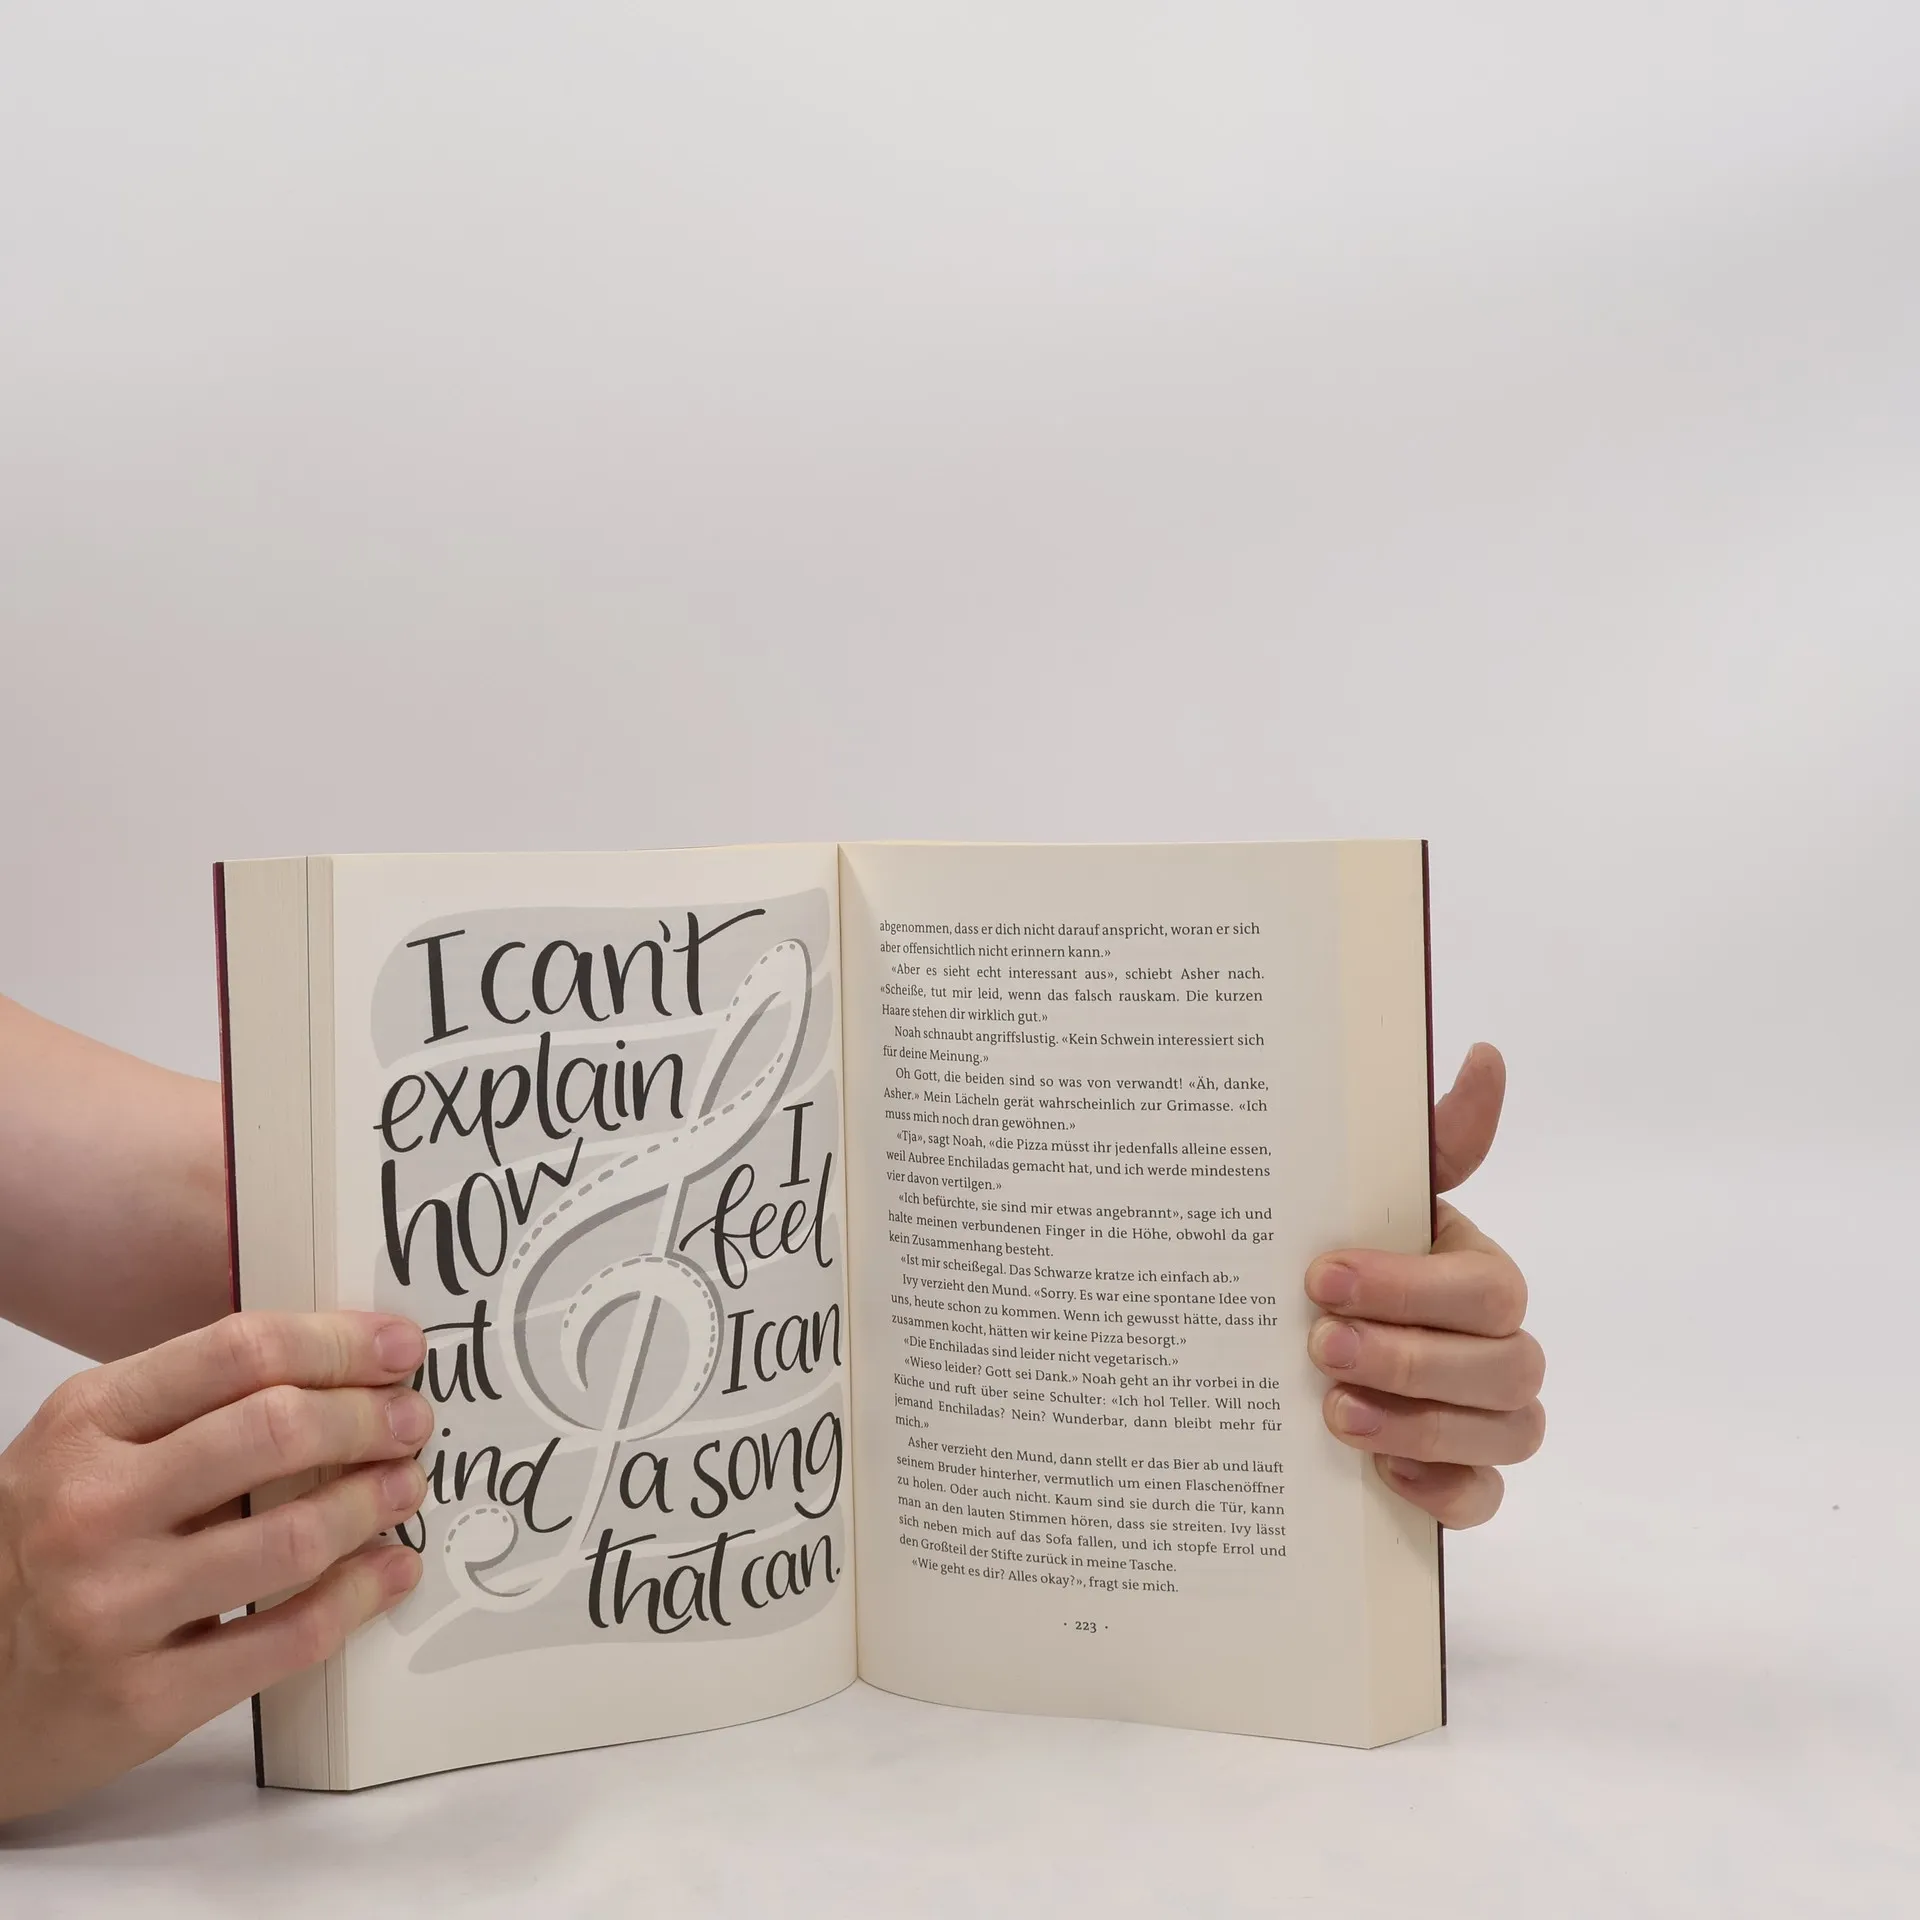 I can't
explain
how I
feel
I can
find a song
that can.
abgenommen, dass er dich nicht darauf anspricht, woran er sich
aber offensichtlich nicht erinnern kann.»
«Aber es sieht echt interessant aus», schiebt Asher nach.
«Scheiße, tut mir leid, wenn das falsch rauskam. Die kurzen
Haare stehen dir wirklich gut.»
Noah schnaubt angriffslustig. «Kein Schwein interessiert sich
für deine Meinung.»
Oh Gott, die beiden sind so was von verwandt! «Äh, danke,
Asher.» Mein Lächeln gerät wahrscheinlich zur Grimasse. «Ich
muss mich noch dran gewöhnen.»
«Tja», sagt Noah, «die Pizza müsst ihr jedenfalls alleine essen,
weil Aubree Enchiladas gemacht hat, und ich werde mindestens
vier davon vertilgen.»
«Ich befürchte, sie sind mir etwas angebrannt», sage ich und
halte meinen verbundenen Finger in die Höhe, obwohl da gar
kein Zusammenhang besteht.
«Ist mir scheißegal. Das Schwarze kratze ich einfach ab.»
Ivy verzieht den Mund. «Sorry. Es war eine spontane Idee von
uns, heute schon zu kommen. Wenn ich gewusst hätte, dass ihr
zusammen kocht, hätten wir keine Pizza besorgt.»
«Die Enchiladas sind leider nicht vegetarisch.»
«Wieso leider? Gott sei Dank.» Noah geht an ihr vorbei in die
Küche und ruft über seine Schulter: «Ich hol Teller. Will noch
jemand Enchiladas? Nein? Wunderbar, dann bleibt mehr für
mich.»
Asher verzieht den Mund, dann stellt er das Bier ab und läuft
seinem Bruder hinterher, vermutlich um einen Flaschenöffner
zu holen. Oder auch nicht. Kaum sind sie durch die Tür, kann
man an den lauten Stimmen hören, dass sie streiten. Ivy lässt
sich neben mich auf das Sofa fallen, und ich stopfe Errol und
den Großteil der Stifte zurück in meine Tasche.
«Wie geht es dir? Alles okay?», fragt sie mich.
· 223 ·